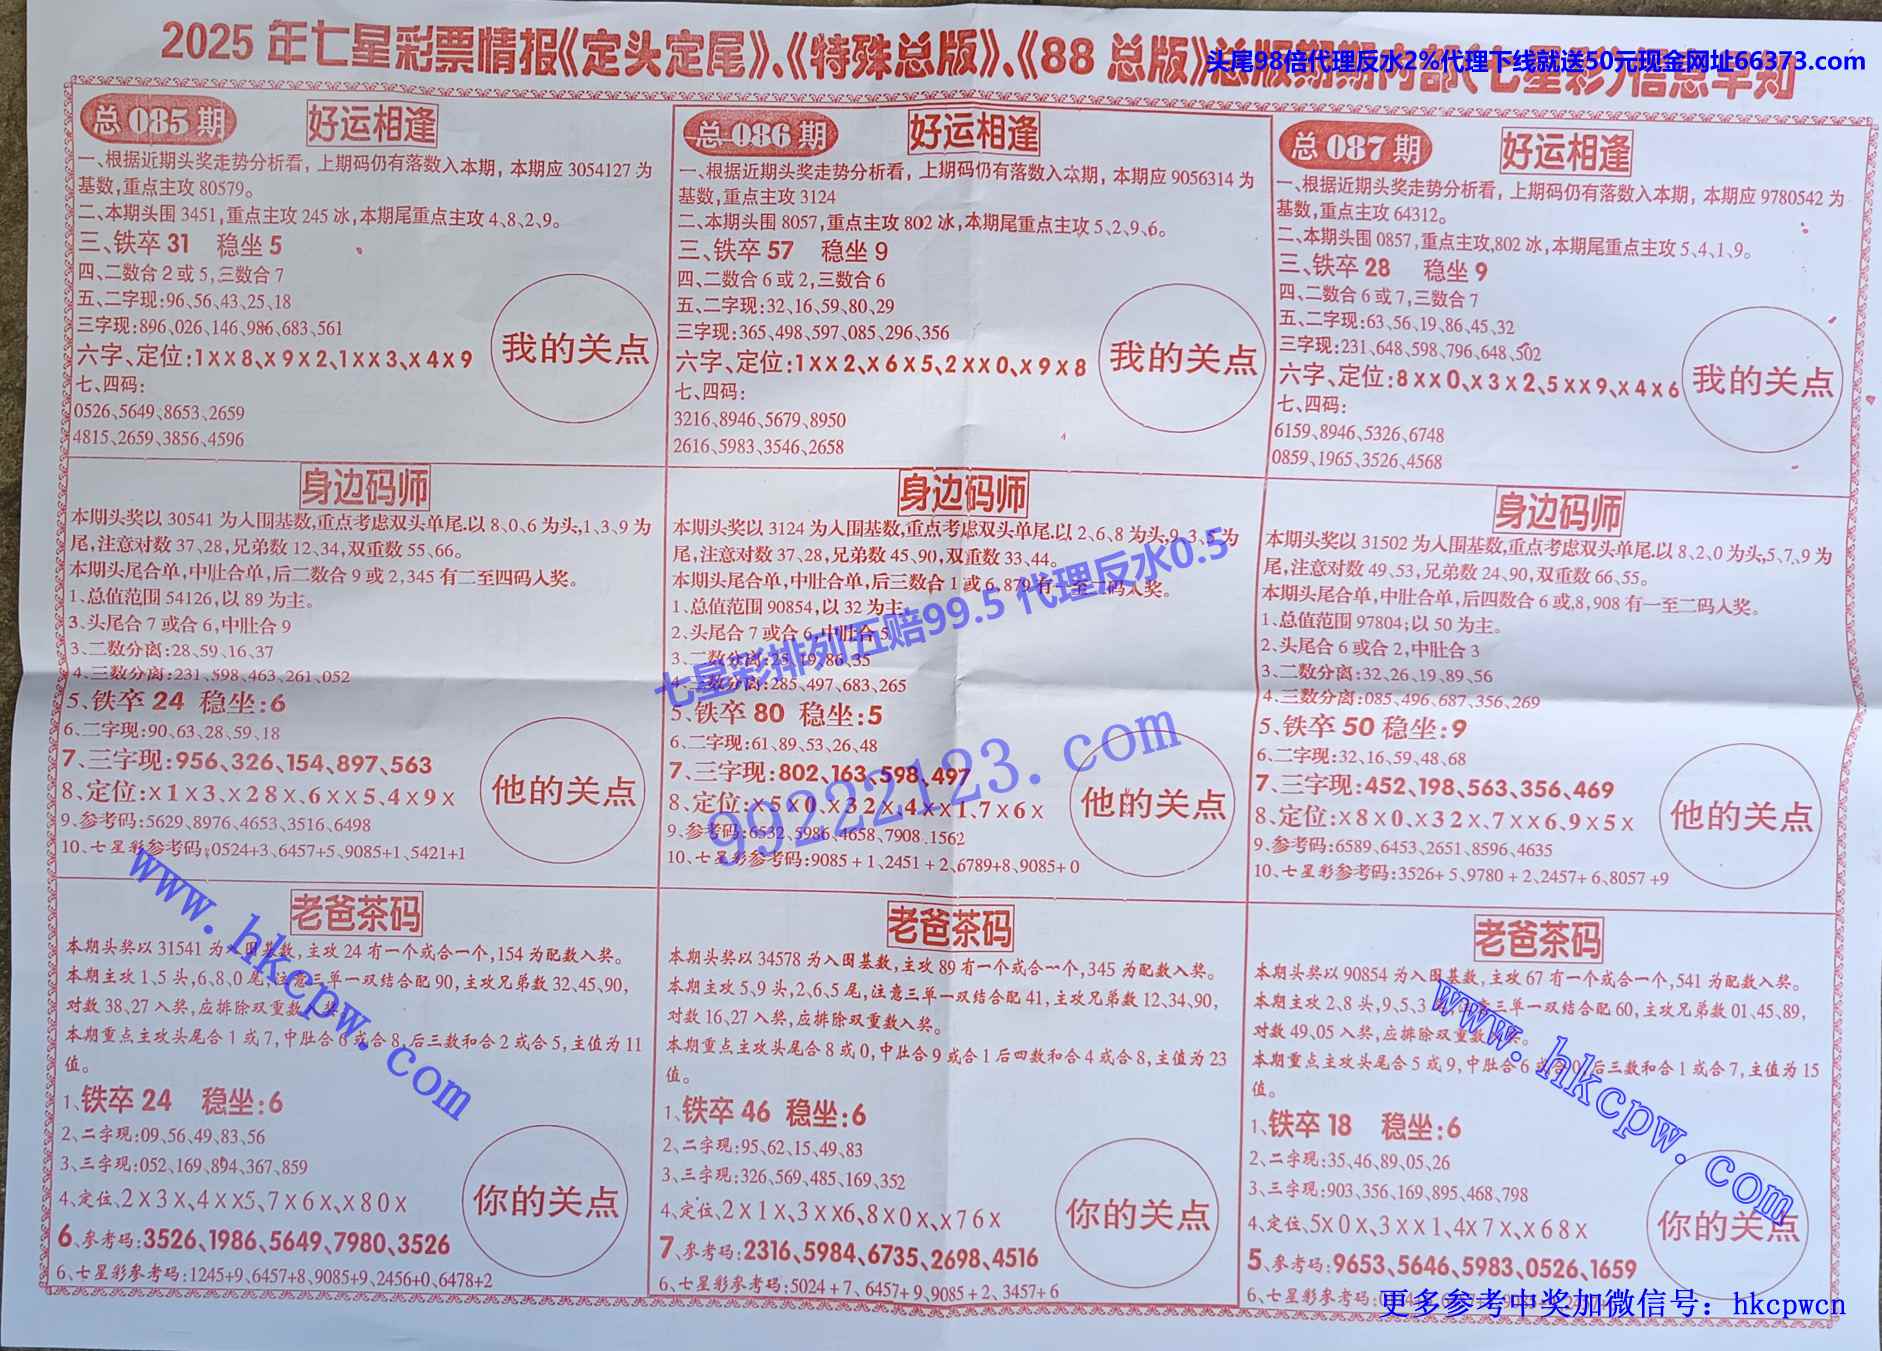 2025 年七星彩票情报《定头定尾》、《特殊总版》、《88 总版》总版期期内部(七星彩)信息早知
头尾98倍代理反水2%代理下线就送50元现金网址66373.com
总 085 期
好运相逢
一、根据近期头奖走势分析看，上期码仍有落数入本期，本期应 3054127 为
基数,重点主攻 80579。
二、本期头围 3451,重点主攻 245 冰,本期尾重点主攻 4、8、2、9。
三、铁卒 31 稳坐 5
四、二数合 2 或 5,三数合 7
五、二字现:96、56、43、25、18
三字现:896、026、146、986、683、561
六字、定位:1XX8、X9X2、1XX3、X4X9
七、四码:
0526、5649、8653、2659
4815、2659、3856、4596
我的关点
身边码师
本期头奖以 30541 为入围基数,重点考虑双头单尾.以 8、0、6 为头,1、3、9 为
尾,注意对数 37、28,兄弟数 12、34,双重数 55、66。
本期头尾合单,中肚合单,后二数合 9 或 2,345 有二至四码入奖。
1、总值范围 54126,以 89 为主。
3、头尾合 7 或合 6,中肚合 9
3、二数分离:28、59、16、37
4、三数分离:231、598、463、261、052
5、铁卒 24 稳坐:6
6、二字现:90、63、28、59、18
7、三字现:956、326、154、897、563
8、定位:X1X3、X28X、6XX5、4X9X
9、参考码:5629、8976、4653、3516、6498
10、七星彩参考码:0524+3、6457+5、9085+1、5421+1
他的关点
老爸茶码
本期头奖以 31541 为入围基数,主攻 24 有一个或合一个,154 为配数入奖。
本期主攻 1、5 头,6、8、0 尾,注意三单一双结合配 90,主攻兄弟数 32、45、90,
对数 38、27 入奖,应排除双重数入奖。
本期重点主攻头尾合 1 或 7,中肚合 6 或合 8,后三数和合 2 或合 5,主值为 11
值。
1、铁卒 24 稳坐:6
2、二字现:09、56、49、83、56
3、三字现:052、169、894、367、859
4、定位、2X3X、4XX5、7X6X、X80X
6、参考码:3526、1986、5649、7980、3526
6、七星彩参考码:1245+9、6457+8、9085+9、2456+0、6478+2
你的关点
总 086 期
好运相逢
一、根据近期头奖走势分析看，上期码仍有落数入本期，本期应 9056314 为
基数,重点主攻 3124
二、本期头围 8057,重点主攻 802 冰,本期尾重点主攻 5、2、9、6。
三、铁卒 57 稳坐 9
四、二数合 6 或 2,三数合 6
五、二字现:32、16、59、80、29
三字现:365、498、597、085、296、356
六字、定位:1XX2、X6X5、2XX0、X9X8
七、四码:
3216、8946、5679、8950
2616、5983、3546、2658
我的关点
身边码师
本期头奖以 3124 为入围基数,重点考虑双头单尾.以 2、6、8 为头,9、3、5 为
尾,注意对数 37、28,兄弟数 45、90,双重数 33、44。
本期头尾合单,中肚合单,后三数合 1 或 6,879 有一至二码入奖。
1、总值范围 90854,以 32 为主。
2、头尾合 7 或合 6,中肚合 5
3、二数分离:25、19、86、35
4、三数分离:285、497、683、265
5、铁卒 80 稳坐:5
6、二字现:61、89、53、26、48
7、三字现:802、163、598、497
8、定位:X5X0、X32X、4XX1、7X6X
9、参考码:6532、5986、4658、7908、1562
10、七星彩参考码:9085+1、2451+2、6789+8、9085+0
他的关点
老爸茶码
本期头奖以 34578 为入围基数,主攻 89 有一个或合一个,345 为配数入奖。
本期主攻 5、9 头,2、6、5 尾,注意三单一双结合配 41,主攻兄弟数 12、34、90,
对数 16、27 入奖,应排除双重数入奖。
本期重点主攻头尾合 8 或 0,中肚合 9 或合 1 后四数和合 4 或合 8,主值为 23
值。
1、铁卒 46 稳坐:6
2、二字现:95、62、15、49、83
3、三字现:326、569、485、169、352
4、定位、2X1X、3XX6、8X0X、X76X
7、参考码:2316、5984、6735、2698、4516
6、七星彩参考码:5024+7、6457+9、9085+2、3457+6
你的关点
总 087 期
好运相逢
一、根据近期头奖走势分析看，上期码仍有落数入本期，本期应 9780542 为
基数,重点主攻 64312。
二、本期头围 0857,重点主攻,802 冰,本期尾重点主攻 5、4、1、9。
三、铁卒 28 稳坐 9
四、二数合 6 或 7,三数合 7
五、二字现:63、56、19、86、45、32
三字现:231、648、598、796、648、502
六字、定位:8XX0、X3X2、5XX9、X4X6
七、四码:
6159、8946、5326、6748
0859、1965、3526、4568
我的关点
身边码师
本期头奖以 31502 为入围基数,重点考虑双头单尾.以 8、2、0 为头,5、7、9 为
尾,注意对数 49、53,兄弟数 24、90,双重数 66、55。
本期头尾合单,中肚合单,后四数合 6 或,8,908 有一至二码入奖。
1、总值范围 97804;以 50 为主。
2、头尾合 6 或合 2,中肚合 3
3、二数分离:32、26、19、89、56
4、三数分离:085、496、687、356、269
5、铁卒 50 稳坐:9
6、二字现:32、16、59、48、68
7、三字现:452、198、563、356、469
8、定位:X8X0、X32X、7XX6、9X5X
9、参考码:6589、6453、2651、8596、4635
10、七星彩参考码:3526+5、9780+2、2457+6、8057+9
他的关点
老爸茶码
本期头奖以 90854 为入围基数,主攻 67 有一个或合一个,541 为配数入奖。
本期主攻 2、8 头,9、5、3 意三单一双结合配 60,主攻兄弟数 01、45、89,
对数 49、05 入奖,应排除双重数入奖。
本期重点主攻头尾合 5 或 9,中肚合 6 或合 0,后三数和合 1 或合 7,主值为 15
值。
1、铁卒 18 稳坐:6
2、二字现:35、46、89、05、26
3、三字现:903、356、169、895、468、798
4、定位、5X0X、3XX1、4X7X、X68X
5、参考码:9653、5646、5983、0526、1659
6、七星彩参考码:
你的关点
七星彩排列五赔99.5 代理反水0.5
99222123.com
www.hkcpw.com
www.hkcpw.com
更多参考中奖加微信号：hkcpwcn